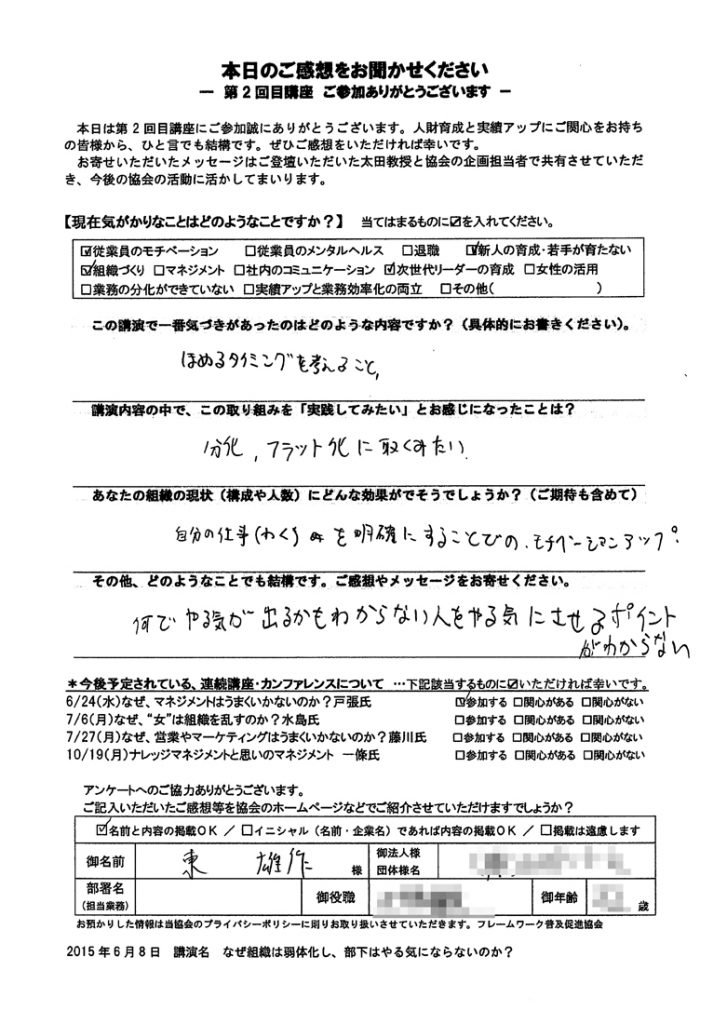 本日のご感想をお聞かせください
― 第2回目講座 ご参加ありがとうございます ―
本日は第2回目講座にご参加誠にありがとうございます。人財育成と実績アップにご関心をお持ち
の皆様から、ひと言でも結構です。ぜひご感想をいただければ幸いです。
お寄せいただいたメッセージはご登壇いただいた太田教授と協会の企画担当者で共有させていただ
き、今後の協会の活動に活かしてまいります。
【現在気がかりなことはどのようなことですか？】 当てはまるものに☑を入れてください。
☑従業員のモチベーション □従業員のメンタルヘルス □退職 ☑新人の育成・若手が育たない
☑組織づくり □マネジメント □社内のコミュニケーション ☑次世代リーダーの育成 □女性の活用
□業務の分化ができていない □実績アップと業務効率化の両立 □その他( )
この講演で一番気づきがあったのはどのような内容ですか？（具体的にお書きください）。
ほめるタイミングを考えること、
講演内容の中で、この取り組みを「実践してみたい」とお感じになったことは？
分化、フラット化に取くみたい
あなたの組織の現状（構成や人数）にどんな効果がでそうでしょうか？（ご期待も含めて）
自分の仕事(わく) を明確にすることでの、モチベーションアップ。
その他、どのようなことでも結構です。ご感想やメッセージをお寄せください。
何でやる気が出るかもわからない人をやる気にさせるポイント
がわからない
＊今後予定されている、連続講座・カンファレンスについて …下記該当するものに☑いただければ幸いです。
6/24(水)なぜ、マネジメントはうまくいかないのか？戸張氏 ☑参加する □関心がある □関心がない
7/6(月)なぜ、“女”は組織を乱すのか？水島氏 □参加する □関心がある □関心がない
7/27(月)なぜ、営業やマーケティングはうまくいかないのか？藤川氏 □参加する □関心がある □関心がない
10/19(月)ナレッジマネジメントと思いのマネジメント 一條氏 □参加する □関心がある □関心がない
アンケートへのご協力ありがとうございます。
ご記入いただいたご感想等を協会のホームページなどでご紹介させていただけますでしょうか？
☑名前と内容の掲載OK ／ □イニシャル（名前・企業名）であれば内容の掲載OK ／ □掲載は遠慮します
御名前 東 雄作 様 御法人様
団体様名
部署名
(担当業務) 御役職 御年齢 歳
お預かりした情報は当協会のプライバシーポリシーに則りお取り扱いさせていただきます。フレームワーク普及促進協会
2015年6月8日 講演名 なぜ組織は弱体化し、部下はやる気にならないのか？